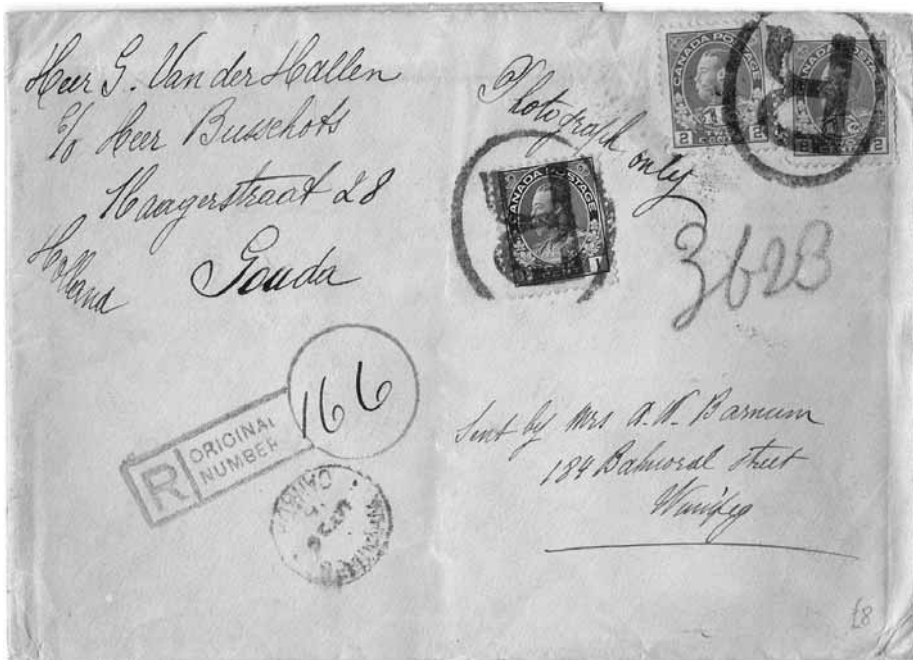 Heer G. Van der Hallen
c/o Heer Busschots
Haagerstraat 28
Gouda
Holland
Photograph only
CANADA POSTAGE
2 2
CANADA POSTAGE
2 2
R
CANADA POSTAGE
1
3623
R ORIGINAL
NUMBER
166
CANADA
Sent by Mrs A. W. Barnum
184 Balmoral Street
Winipeg
£8